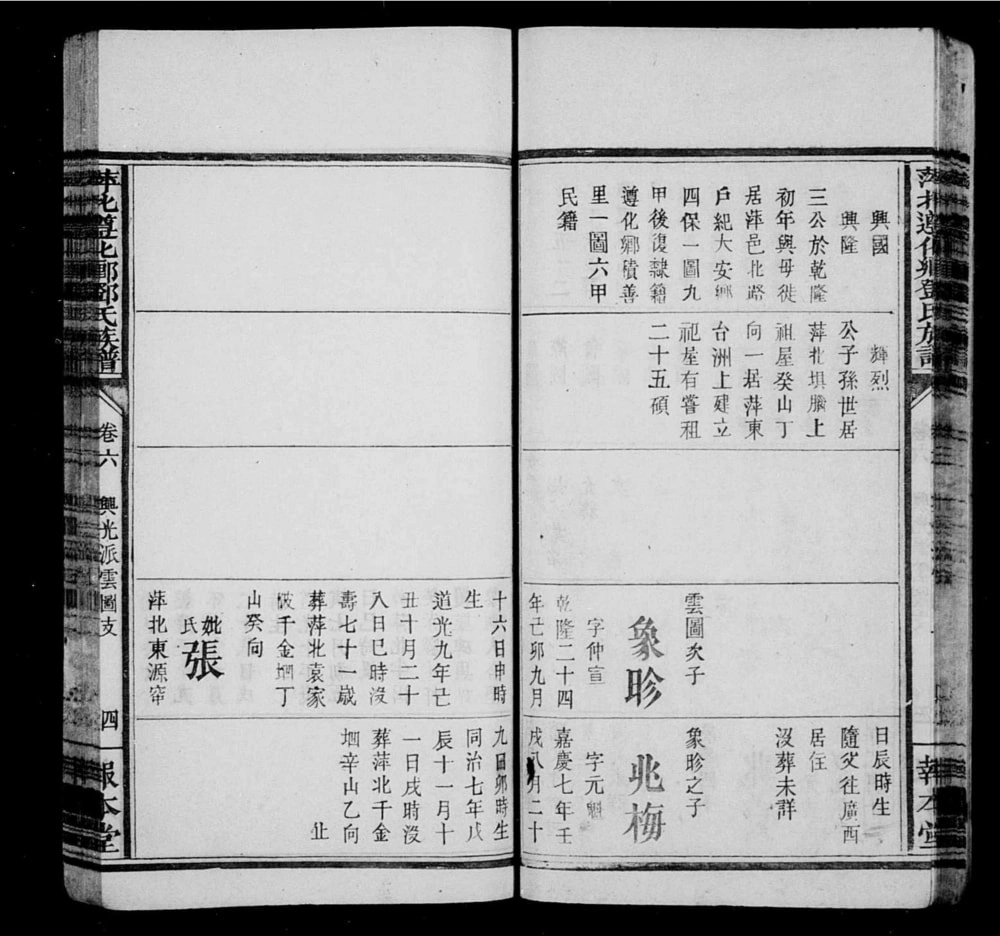 興國
興隆
三公於乾隆
初年與母徙
居萍邑北路
戶紀大安鄉
四保一圖九
甲後復隸籍
遵化鄉積善
里一圖六甲
民籍
輝烈
公子孫世居
萍北塤腦上
祖屋癸山丁
向一居萍東
台洲上建立
祀產有嘗租
二十五碩
雲圖次子
象昣
字仲宣
乾隆二十四
年己卯九月
十六日申時
生
道光九年己
丑十月二十
八日巳時沒
壽七十一歲
葬萍北袁家
陂千金堋丁
山癸向
妣
氏
張
萍北東源
日辰時生
隨父往廣西
居住
沒葬未詳
象昣之子
兆梅
字元魁
嘉慶七年壬
戌八月二十
九日卯時生
同治七年戊
辰十一月十
一日戌時沒
葬萍北千金
堋辛山乙向
止
萍北遵化鄉鄧氏族譜
卷六
興光派雲圖支
四
報本堂